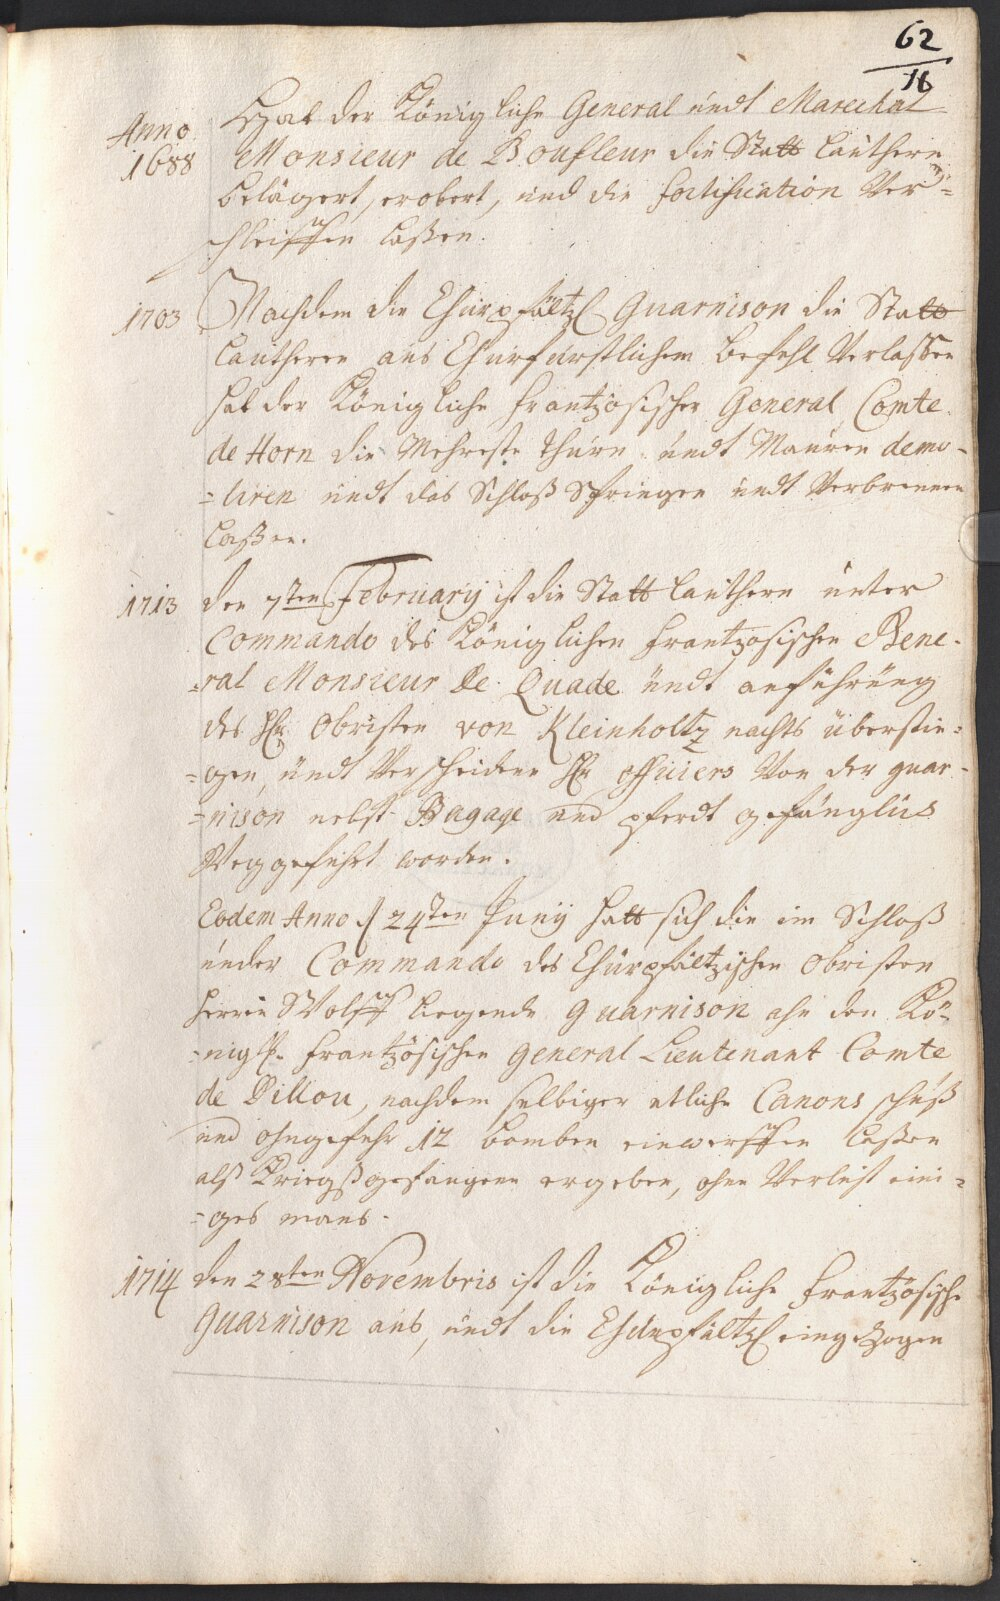 62
16
Anno 1688
Hat der Königliche General undt Marechal
Monsieur de Boufleur die Statt Lauthern
belägert, erobert, und die fortification Ver=
schleiffen laßen.
1703 Nachdem die Churpfältz. Guarnison die Statt
Lautheren aus Churfürstlichem befehl Verlassen
hat der Königliche frantzösischer General Comte
de Horn die Mehreste thürn undt Mauren demo=
=liren undt das Schloß Springen undt Verbrennen
laßen.
1713 den 7ten February ist die Statt Lauthern unter
Commando des Königlichen frantzosischen Gene=
=ral Monsieur De Quade undt anführung
des H. Obristen von Kleinholtz nachts überstie=
=gen, undt Verscheidene H. officiers Von der guar=
=nison nebst Bagage und pferdt gefänglüs
Weggeführt worden.
Eodem Anno d 24ten Juny hatt sich die im Schloß
under Commando des Churpfältzischen Obristen
Herrn Wolff liegende Guarnison ahn den Kö=
=nigl. frantzösischen General Lieutenant Comte
de Dillon, nachdem selbiger etliche Canons schuß
und ohngefehr 12 bomben einwerffen laßen
alß Kriegßgefangene ergeben, ohne Verlust eini=
=ges mans.
1714 den 28ten Novembris ist die Königliche frantzösische
Guarnison aus, undt die Churpfältz. eingezogen